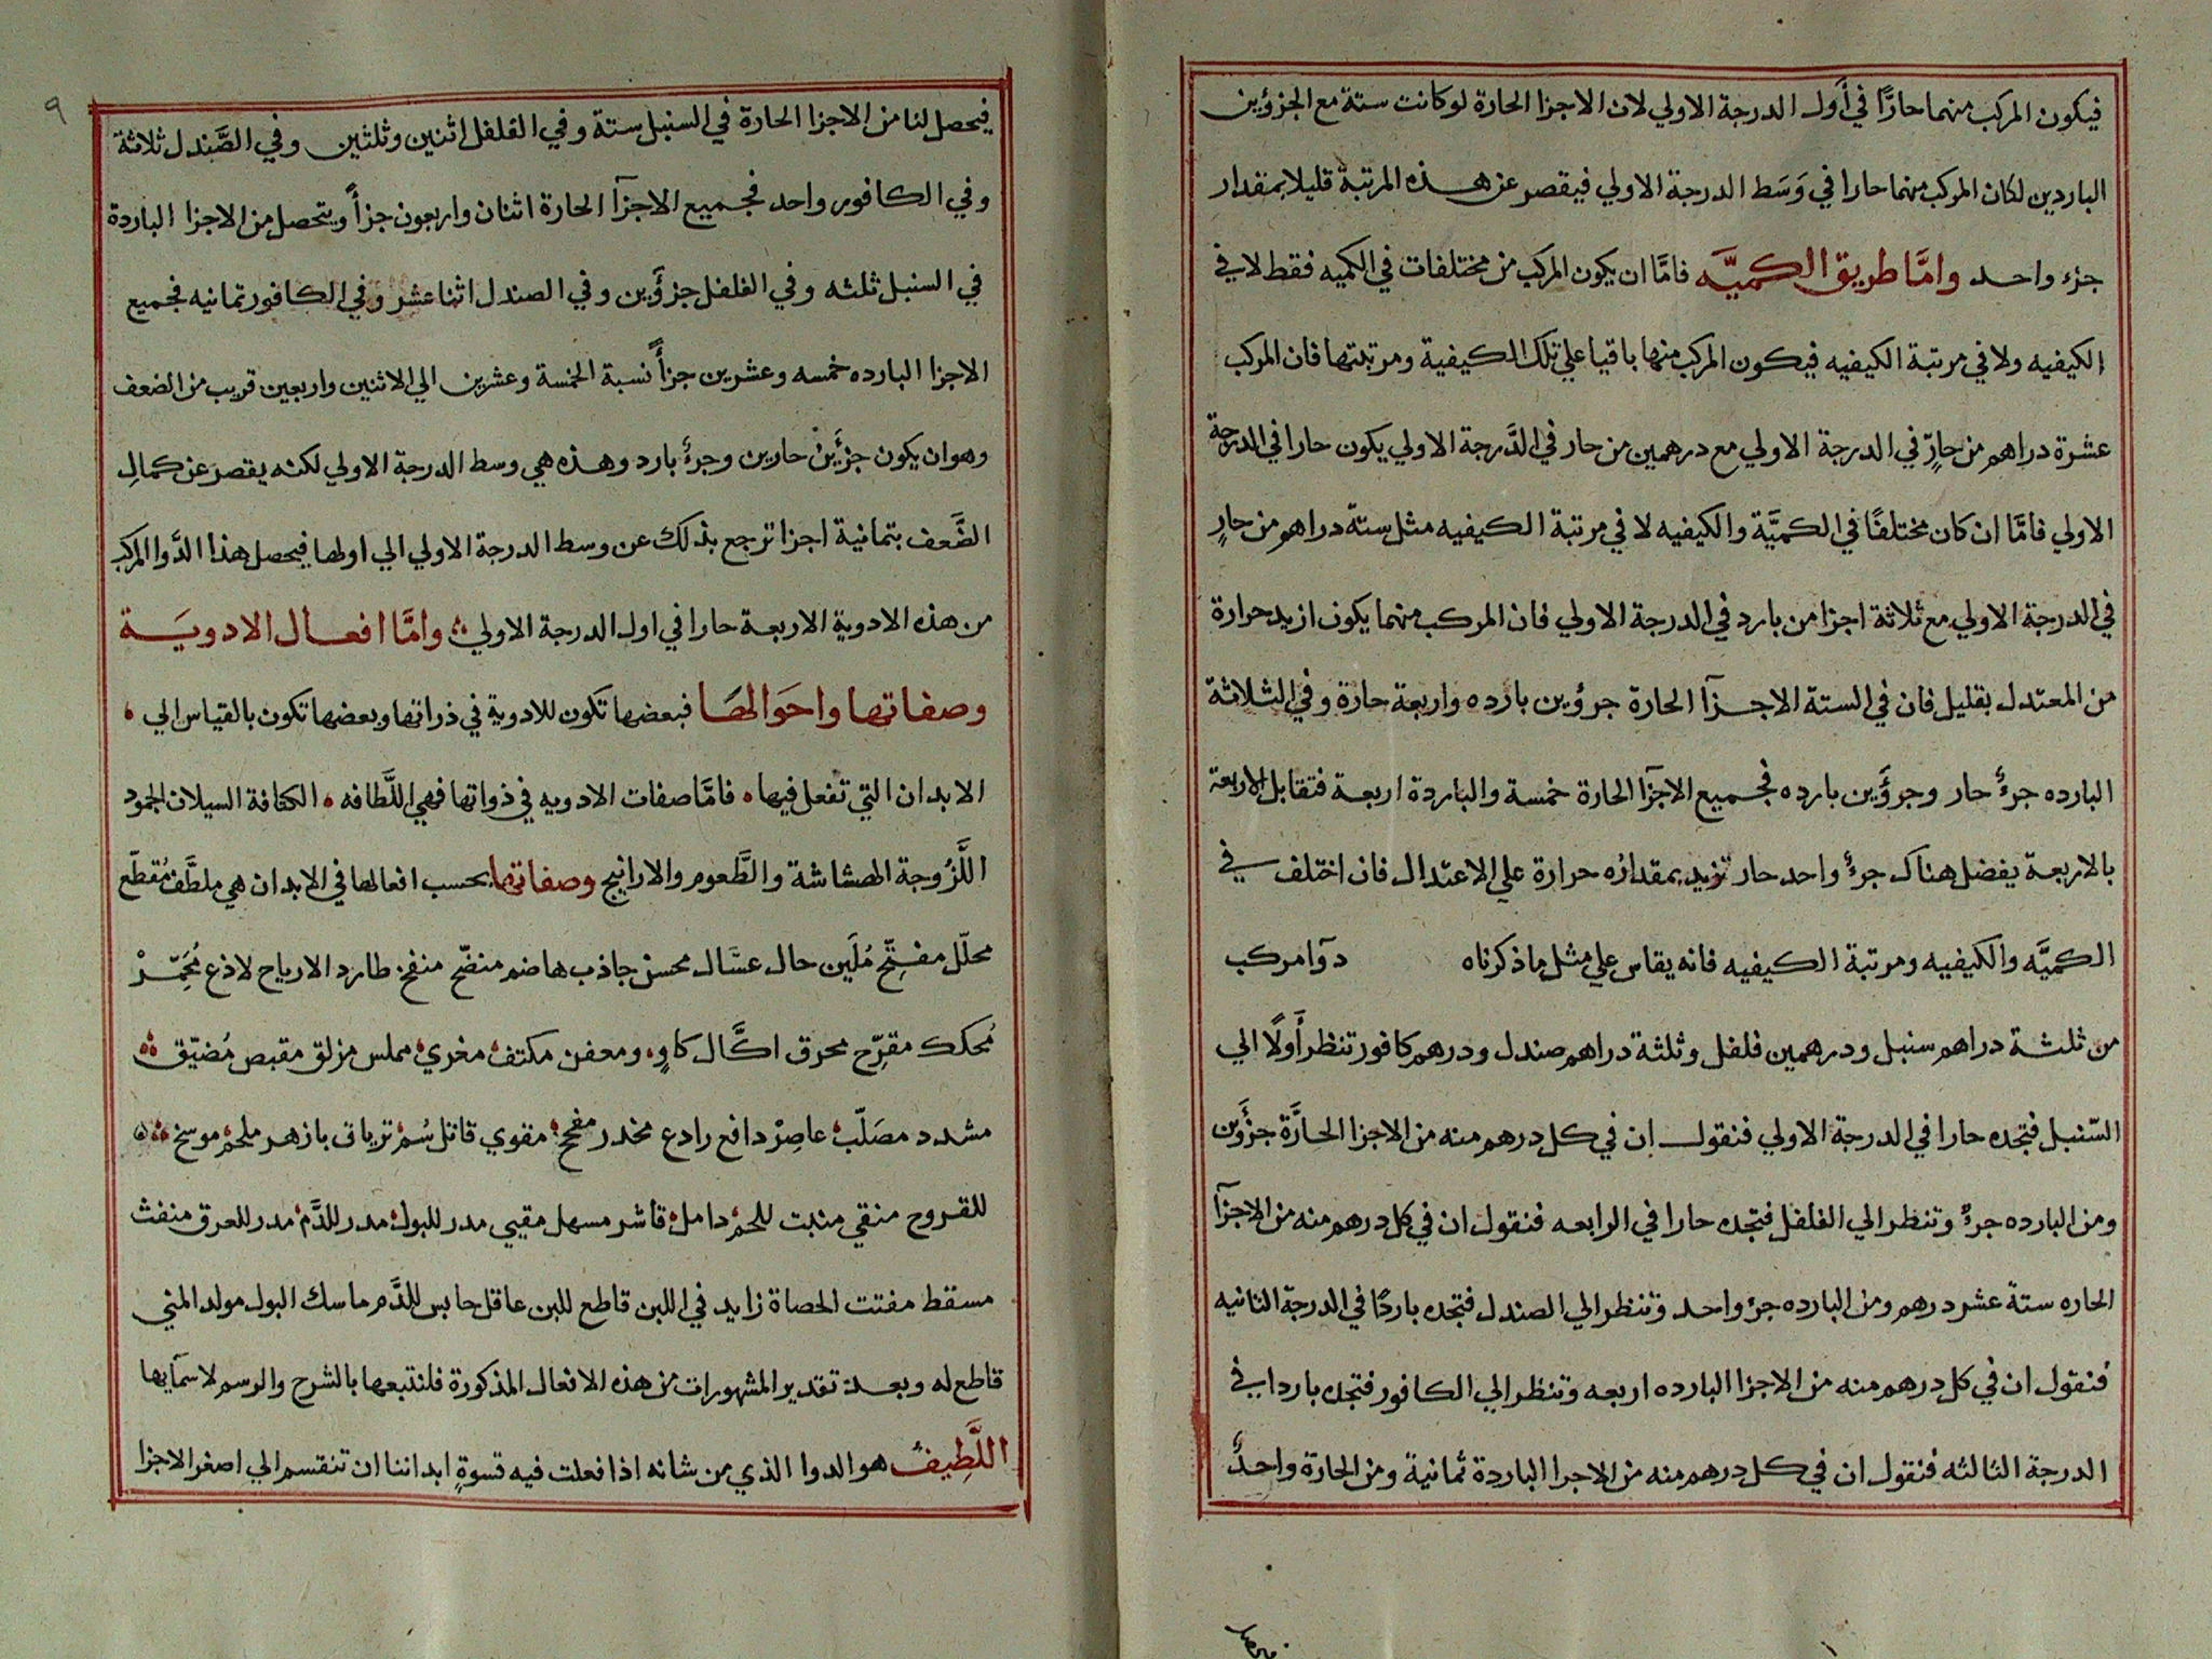 فيكون المركب منهما حارًا في أول الدرجة الاولي لان الاجزا الحارة لو كانت ستة مع الجزؤين
الباردين لكان المركب منهما حارا في وَسَط الدرجة الاولي فيقصر عن هذه المرتبة قليلا بمقدار
جزء واحد وامَّا طريق الكميَّه فامَّا ان يكون المركب من مختلفات في الكميه فقط لا في
الكيفيه ولا في مرتبة الكيفيه فيكون المركب منها باقيا علي تلك الكيفية ومرتبتها فان المركب
عشرة دراهم من حارٍّ في الدرجة الاولي مع درهمين من حار في الدَّرجة الاولي يكون حارا في الدرجة
الاولي فامَّا ان كان مختلفًا في الكميَّة والكيفيه لا في مرتبة الكيفيه مثل ستة دراهم من حارٍ
في الدرجة الاولي مع ثلاثة اجزا من بارد في الدرجة الاولي فان المركب منهما يكون ازيد حرارة
من المعتدل بقليل فان في الستة الاجزآ الحارة جرؤين بارده واربعة حارة وفي الثلاثة
البارده جرءٌ حار وجرؤَين بارده فجميع الاجزآ الحارة خمسة والباردة اربعة فتقابل الاربعة
بالاربعة يفضل هناك جرءٌ واحد حار تزيد بمقداره حرارة علي الاعتدال فان اختلف في
الكميَّه والكيفيه ومرتبة الكيفيه فانه يقاس علي مثل ما ذكرناه دوآ مركب
من ثلثة دراهم سنبل ودرهمين فلفل وثلثة دراهم صندل ودرهم كافور تنظر أَولًا الي
السّنبل فتجده حارا في الدرجة الاولي فنقول ان في كل درهم منه من الاجزا الحارَّة جزؤَين
ومن البارده جرءٌ وتنظر الي الفلفل فتجده حارا في الرابعه فنقول ان في كل درهم منه من الاجزآ
الحاره ستة عشر درهم ومن البارده جرؤ واحد وتنظر الي الصندل فتجده باردًا في الدرجة الثانيه
فنقول ان في كل درهم منه من الاجزا البارده اربعه وتنظر الي الكافور فتجده باردا في
الدرجة الثالثه فنقول ان في كل درهم منه من الاجرا الباردة ثمانية ومن الحارة واحدٌ
٩
فيحصل لنا من الاجزا الحارة في السنبل ستة وفي الفلفل اثنين وثلثين وفي الصَّندل ثلاثة
وفي الكافور واحد فجميع الاجزآ الحارة اثنان واربعون جزأً ويتحصل من الاجزا الباردة
في السنبل ثلثه وفي الفلفل جزؤَين وفي الصندل اثنا عشر وفي الكافور ثمانيه فجميع
الاجزا البارده خمسه وعشرين جزأً نسبة الخمسة وعشرين الي الاثنين واربعين قريب من الضعف
وهو ان يكون جزئَين حارين وجرءٌ بارد وهذه هي وسط الدرجة الاولي لكنه يقصر عن كمالِ
الضَّعف بثمانية اجزا ترجع بذلك عن وسط الدرجة الاولي الي اولها فيحصل هذا الدَّوا المركب
من هذه الادوية الاربعة حارا في اول الدرجة الاولي وامَّا افعال الادويَة
وصفاتها واحَوالهَا فبعضها تكون للادوية في ذراتها وبعضها تكون بالقياس الي
الابدان التي تفعل فيها فامَّا صفات الادويه في ذواتها فهي اللَّطافه الكثافة السيلان الجمود
اللَّزُوجة الهشاشة والطَّعوم والاراييح وصفاتها بحسب افعالها في الابدان هي ملطَّف مُقطّع
محلّل مفتِّح مُلَين حال عسَّال محسن جاذب هاضم منضّج منفخ طارد الارياح لاذع مُحَمِّرْ
مُحكك مقرِّح محرق اكَّال كاوٍ ومعفن مكتف مغري مملس مزلق مقبض مُضيّق
مشدد مصَلّب عاصِرْ دافع رادع مخدر مفجج مقوي قاتل سُم ترياق بازهر ملحم موسخ
للقروح منقي منبت للحم دامل قاشر مسهل مقيي مدر للبول مدر للدَّم مدر للعرق منفث
مسقط مفتت الحصاة زايد في اللبن قاطع للبن عاقل حابس للدَّم ماسك البول مولد المني
قاطع له وبعد تقدير المشهورات من هذه الافعال المذكورة فلنتبعها بالشرح والرسم لاسمآيها
اللَّطِيفُ هو الدوا الذي من شانه اذا فعلت فيه قسوةٍ ابداننا ان تنقسم الي اصغر الاجزا